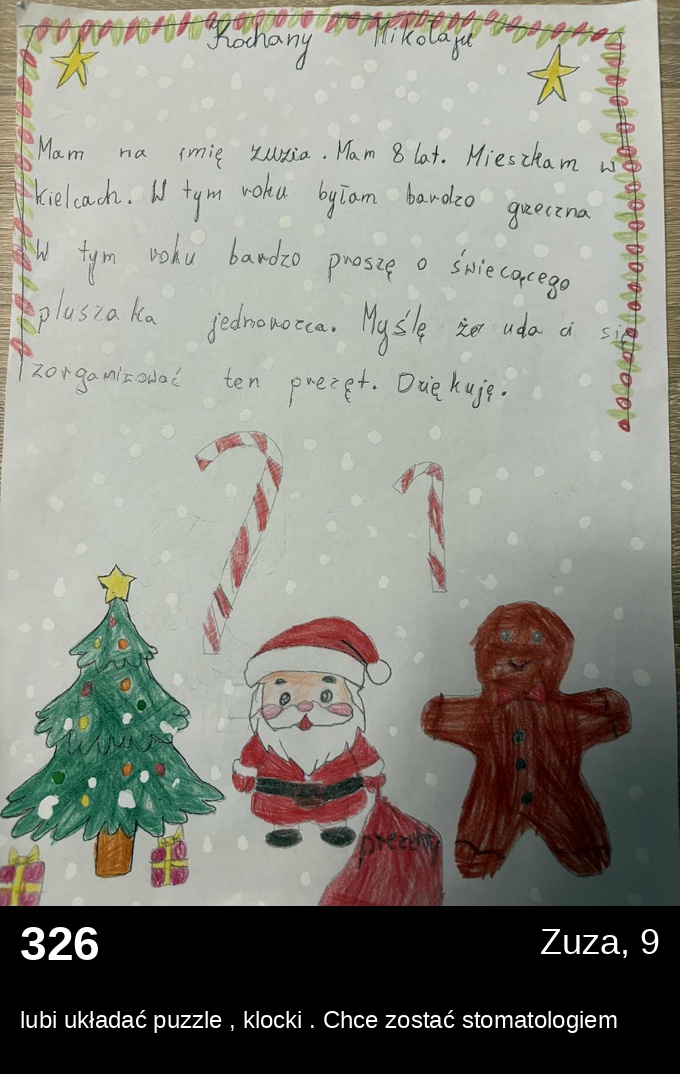 Kochany Mikołaju
Mam na imię Zuzia. Mam 8 lat. Mieszkam w
Kielcach. W tym roku byłam bardzo grzeczna
W tym roku bardzo proszę o świecącego
pluszaka jednorożca. Myślę że uda ci się
zorganizować ten prezęt. Dziękuję.
prezenty
326
Zuza, 9
lubi układać puzzle , klocki . Chce zostać stomatologiem